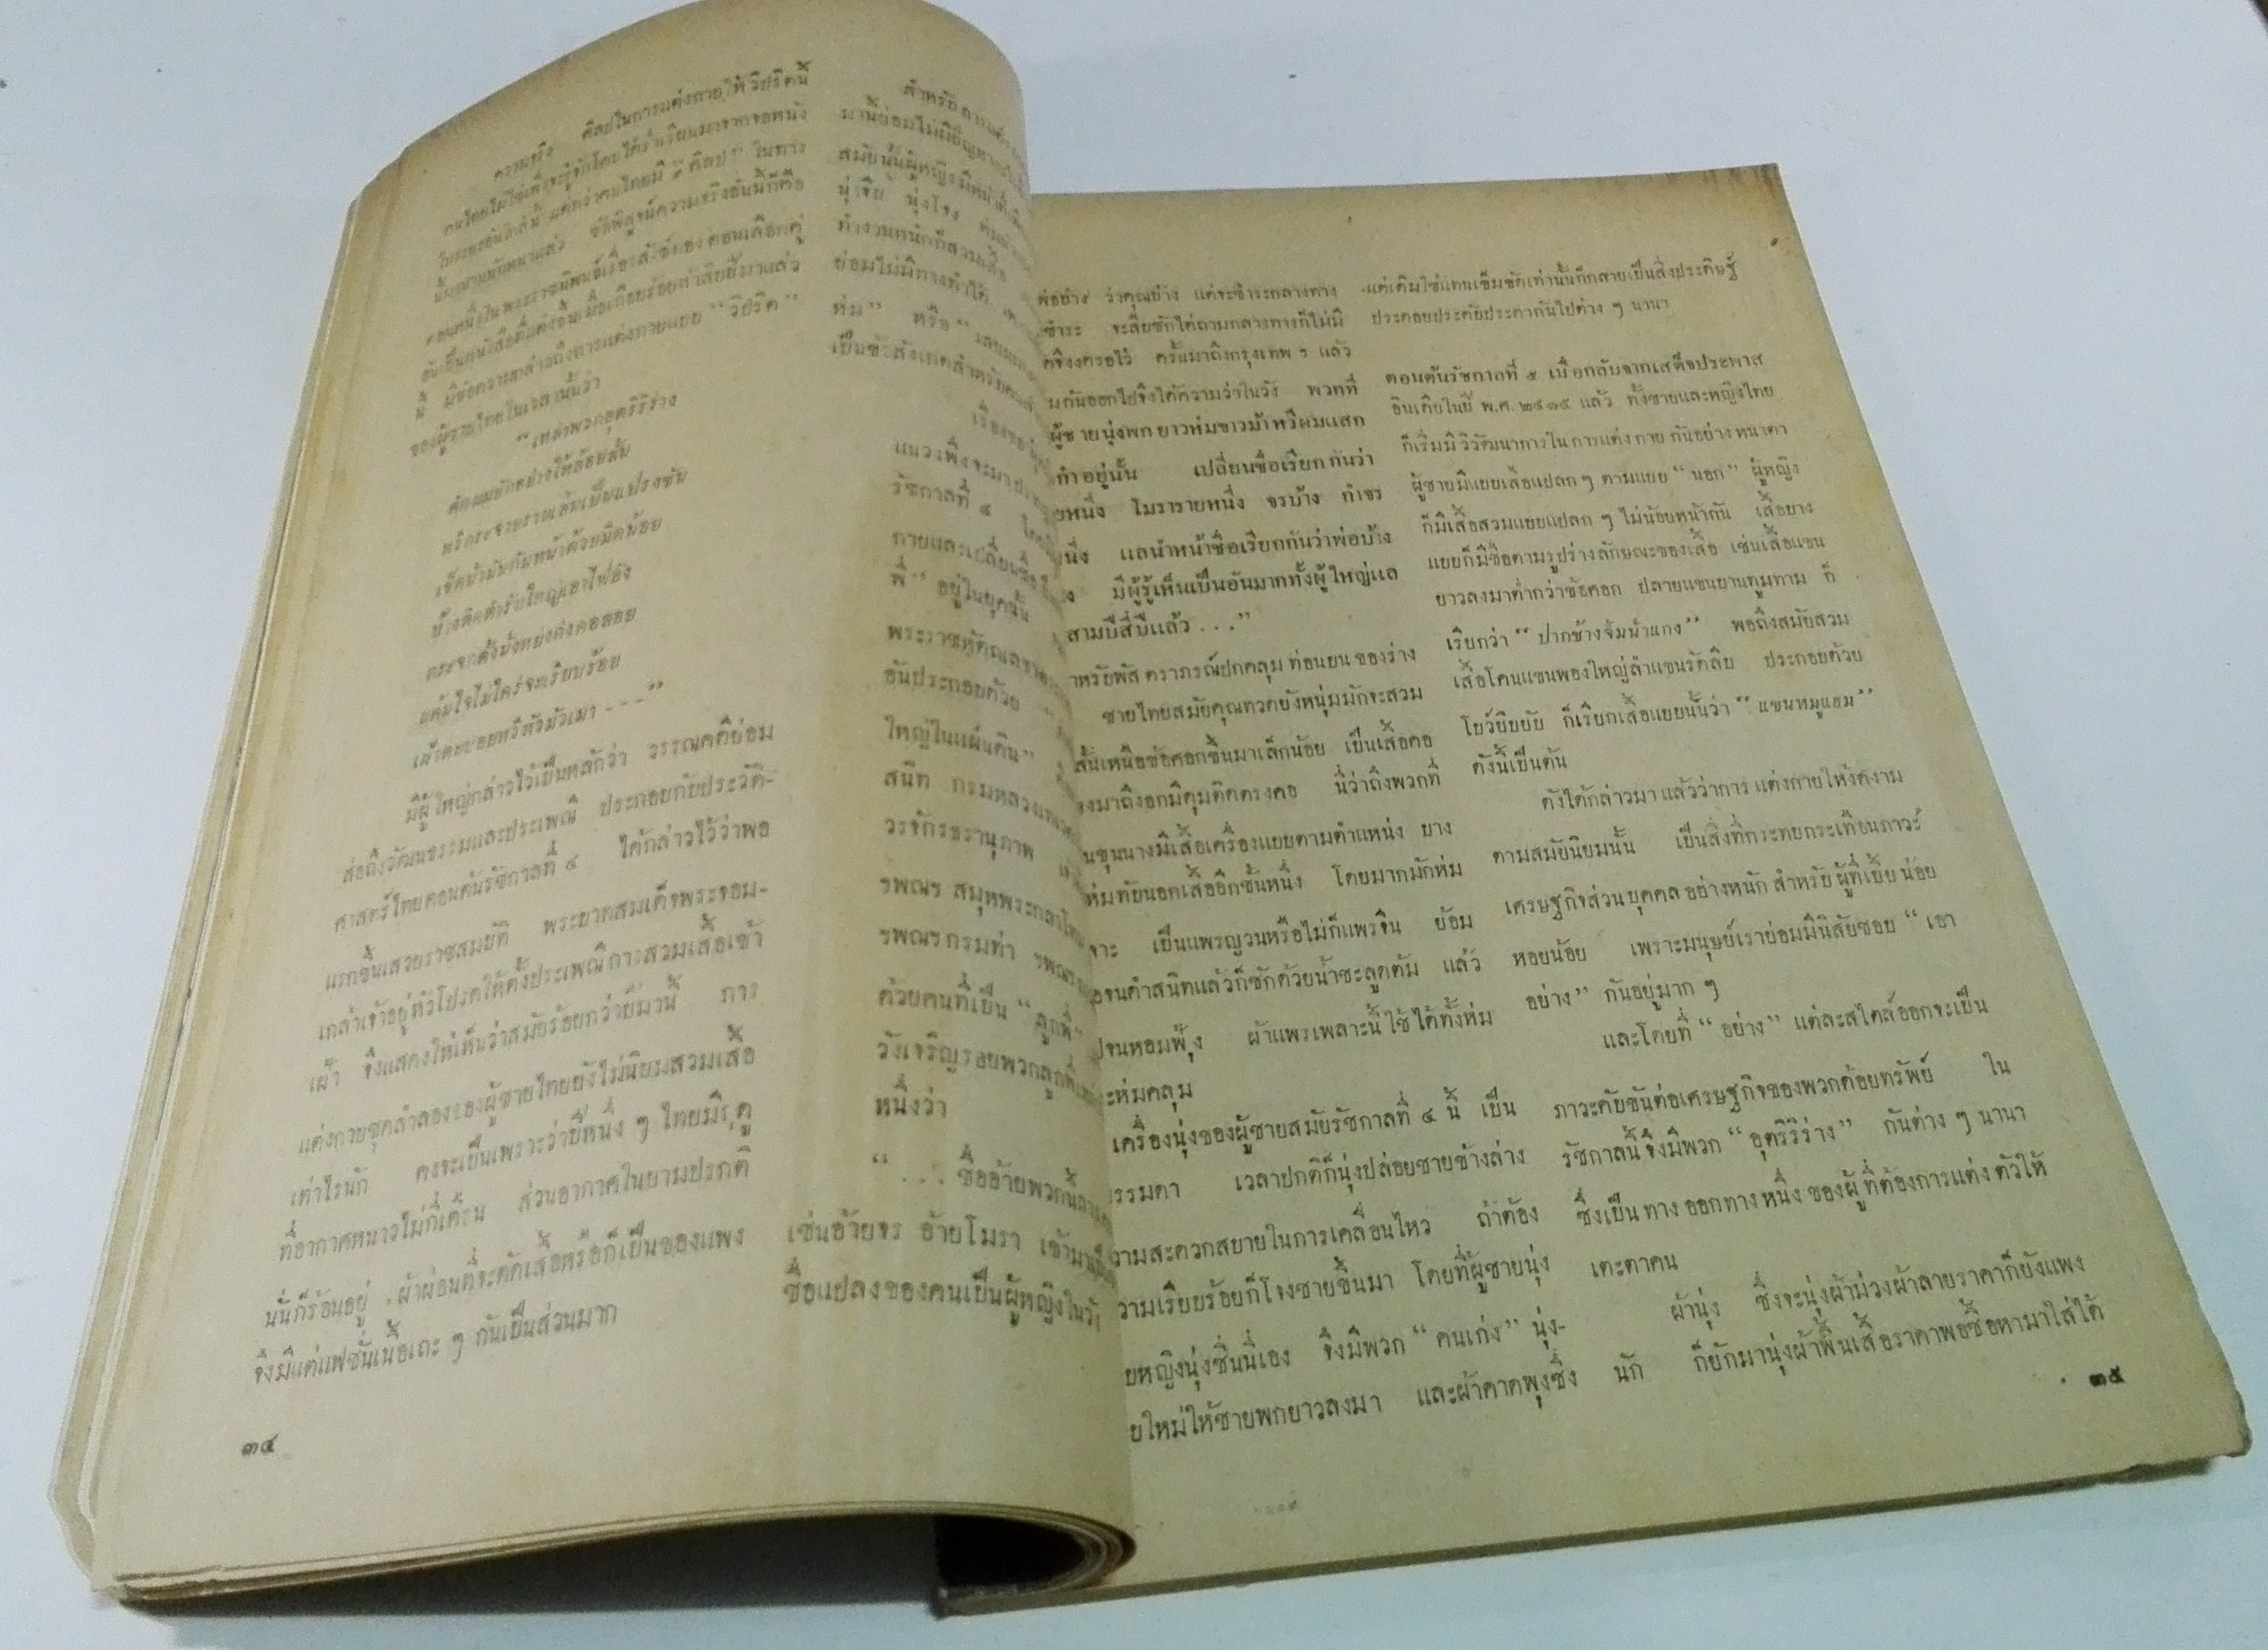 ความจริง ศิลปในการแต่งกายให้วิปริตนี้
คนไทยไม่ใช่เพิ่งจะรู้จักโดยได้ร่ำเรียนมาจากจอหนัง
ในระยะอันใกล้นี้ แต่ทว่าคนไทยมี “ศิลป” ในทาง
นี้มาช้านานนักหนาแล้ว ข้อพิสูจน์ความจริงอันนี้ก็คือ
ตอนหนึ่งในพระราชนิพนธ์เรื่องสังข์ทอง ตอนเลือกคู่
อันเป็นหนังสือที่แต่งขึ้นเมื่อเกือบร้อยห้าสิบปีมาแล้ว
นี้ มีข้อความกล่าวถึงการแต่งกายแบบ “วิปริต”
ของผู้ชายไทยในเวลานั้นว่า
“เหล่าพวกอุตริริร่าง
ตัดผมยักอย่างให้ล้อยสั้น
หวีกระจายรายเส้นเป็นแปรงชัน
เช็ดน้ำมันกันหน้าด้วยมีดน้อย
บ้างติดตำรับใหญ่เอาไฟอัง
กระจกตั้งนั่งหย่งก่งคอสอย
แต่มใจไม่ใคร่จะเรียบร้อย
เฝ้าตะบอยหวีหัวมัวเมา - - -”
มีผู้ใหญ่กล่าวไว้เป็นหลักว่า วรรณคดีย่อม
ส่อถึงวัฒนธรรมและประเพณี ประกอบกับประวัติ-
ศาสตร์ไทยตอนต้นรัชกาลที่ ๔ ได้กล่าวไว้ว่าพอ
แรกขึ้นเสวยราชสมบัติ พระบาทสมเด็จพระจอม-
เกล้าเจ้าอยู่หัวโปรดให้ตั้งประเพณีการสวมเสื้อเข้า
เฝ้า จึงแสดงให้เห็นว่าสมัยร้อยกว่าปีมานี้ การ
แต่งกายชุดลำลองของผู้ชายไทยยังไม่นิยมสวมเสื้อ
เท่าไรนัก คงจะเป็นเพราะว่าปีหนึ่ง ๆ ไทยมีฤดู
ที่อากาศหนาวไม่กี่เดือน ส่วนอากาศในยามปรกติ
นั่นก็ร้อนอยู่ ผ้าผ่อนที่จะตัดเสื้อหรือก็เป็นของแพง
จึงมีแต่แฟชั่นเนื้อเถะ ๆ กันเป็นส่วนมาก
๓๔
สำหรับการแต่ง
มานี้ย่อมไม่มีปัญหา
สมัยนั้นผู้หญิง
นุ่งจีบ นุ่งโจง
ทำงานหนักก็สวมเสื้อ
ย่อมไม่มีทางทำให้
ห่ม” หรือ “
เป็นข้อสังเกตสำหรับ
เรื่องของ
แนวงพึ่งจะมา
รัชกาลที่ ๔
กายและเปลี่ยนชื่อ
พี่” อยู่ในยุคนั้น
พระราชหัตถเลขา
อันประกอบด้วย
ใหญ่ในแผ่นดิน”
สนิท กรมหลวง
วรจักรธรานุภาพ
ฯพณฯ สมุหพระกลาโหม
ฯพณฯ กรมท่า ฯพณฯ
ด้วยคนที่เป็น “ลูกพี่”
วังเจริญรอยพวกลูกพี่
หนึ่งว่า
“. . . ชื่ออ้ายพวกนี้
เช่นอ้ายจร อ้ายโมรา เข้ามา
ชื่อแปลงของคนเป็นผู้หญิงในวัง
พ่อย่าง ว่าคุณย่าง แต่จะชำระกลางทาง
ชำระ จะสืบซักไต่ถามกลางทางก็ไม่มี
ตจึงงดรอไว้ ครั้นมาถึงกรุงเทพ ฯ แล้ว
มกันออกไปจึงได้ความว่าในวัง พวกที่
ผู้ชายนุ่งพก ยาวห่มขาวม้าหวีผมแสก
กำอยู่นั้น เปลี่ยนชื่อเรียกกันว่า
ยหนึ่ง โมรารายหนึ่ง จรบ้าง กำจร
นึ่ง แลนำหน้าชื่อเรียกกันว่าพ่อบ้าง
ง มีผู้รู้เห็นเป็นอันมากทั้งผู้ใหญ่แล
สามปีสี่ปีแล้ว . . .”
าหรับพัสตราภรณ์ปกคลุมท่อนบนของร่าง
ชายไทยสมัยคุณทวดยังหนุ่มมักจะสวม
สั้นเหนือข้อศอกขึ้นมาเล็กน้อย เป็นเสื้อคอ
งมาถึงอกมีดุมติดตรงคอ นี่ว่าถึงพวกที่
นขุนนางมีเสื้อเครื่องแบบตามตำแหน่ง บาง
ห่มทับนอกเสื้ออีกชั้นหนึ่ง โดยมากมักห่ม
จาะ เป็นแพรญวนหรือไม่ก็แพรจีน ย้อม
อจนดำสนิทแล้วก็ซักด้วยน้ำชะลูดต้ม แล้ว
ปจนหอมฟุ้ง ผ้าแพรเพลาะนี้ใช้ได้ทั้งห่ม
ะห่มคลุม
เครื่องนุ่งของผู้ชายสมัยรัชกาลที่ ๔ นี้ เป็น
รรมดา เวลาปกติก็นุ่งปล่อยชายข้างล่าง
วามสะดวกสบายในการเคลื่อนไหว ถ้าต้อง
วามเรียบร้อยก็โจงชายขึ้นมา โดยที่ผู้ชายนุ่ง
ยหญิงนุ่งซิ่นนี่เอง จึงมีพวก “คนเก่ง” นุ่ง-
ยใหม่ให้ชายพกยาวลงมา และผ้าคาดพุงซึ่ง
แต่เดิมใช้แทนเข็มขัดเท่านั้นก็กลายเป็นสิ่งประดิษฐ์
ประกอบประดับประดากันไปต่าง ๆ นานา
ตอนต้นรัชกาลที่ ๕ เมื่อกลับจากเสด็จประพาส
อินเดียในปี พ.ศ. ๒๔๑๕ แล้ว ทั้งชายและหญิงไทย
ก็เริ่มมีวิวัฒนาการในการแต่งกาย กันอย่างหนาตา
ผู้ชายมีแบบเสื้อแปลก ๆ ตามแบบ “นอก” ผู้หญิง
ก็มีเสื้อสวมแบบแปลก ๆ ไม่น้อยหน้ากัน เสื้อบาง
แบบก็มีชื่อตามรูปร่างลักษณะของเสื้อ เช่นเสื้อแขน
ยาวลงมาต่ำกว่าข้อศอก ปลายแขนบานทูมทาม ก็
เรียกว่า “ปากช้างจิ้มน้ำแกง” พอถึงสมัยสวม
เสื้อโคนแขนพองใหญ่ลำแขนรัดลีบ ประกอบด้วย
โบว์ยิบยับ ก็เรียกเสื้อแบบนั้นว่า “แขนหมูแฮม”
ดังนี้เป็นต้น
ดังได้กล่าวมาแล้วว่าการแต่งกายให้งดงาม
ตามสมัยนิยมนั้น เป็นสิ่งที่กระทบกระเทือนภาวะ
เศรษฐกิจส่วนบุคคลอย่างหนัก สำหรับผู้ที่เบี้ยน้อย
หอยน้อย เพราะมนุษย์เราย่อมมีนิสัยชอบ “เอา
อย่าง” กันอยู่มาก ๆ
และโดยที่ “อย่าง” แต่ละสไตล์ออกจะเป็น
ภาวะคับขันต่อเศรษฐกิจของพวกด้อยทรัพย์ ใน
รัชกาลนี้จึงมีพวก “อุตริริร่าง” กันต่าง ๆ นานา
ซึ่งเป็นทางออกทางหนึ่งของผู้ที่ต้องการแต่งตัวให้
เตะตาคน
ผ้านุ่ง ซึ่งจะนุ่งผ้าม่วงผ้าลายราคาก็ยังแพง
นัก ก็ยักมานุ่งผ้าพื้นเสื้อราคาพอซื้อหามาใส่ได้
๓๕